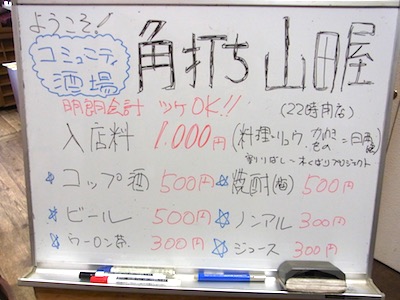 ようこそ!
コミュニティ酒場
角打ち 山田屋
明朗会計 ツケOK!!
(22時閉店)
入店料 1,000円
(料理・リュウ
割りばし〜木くばりプロジェクト
☆コップ酒 500円
☆焼酎 500円
☆ビール 500円
☆ノンアル 300円
☆ウーロン茶 300円
☆ジュース 300円